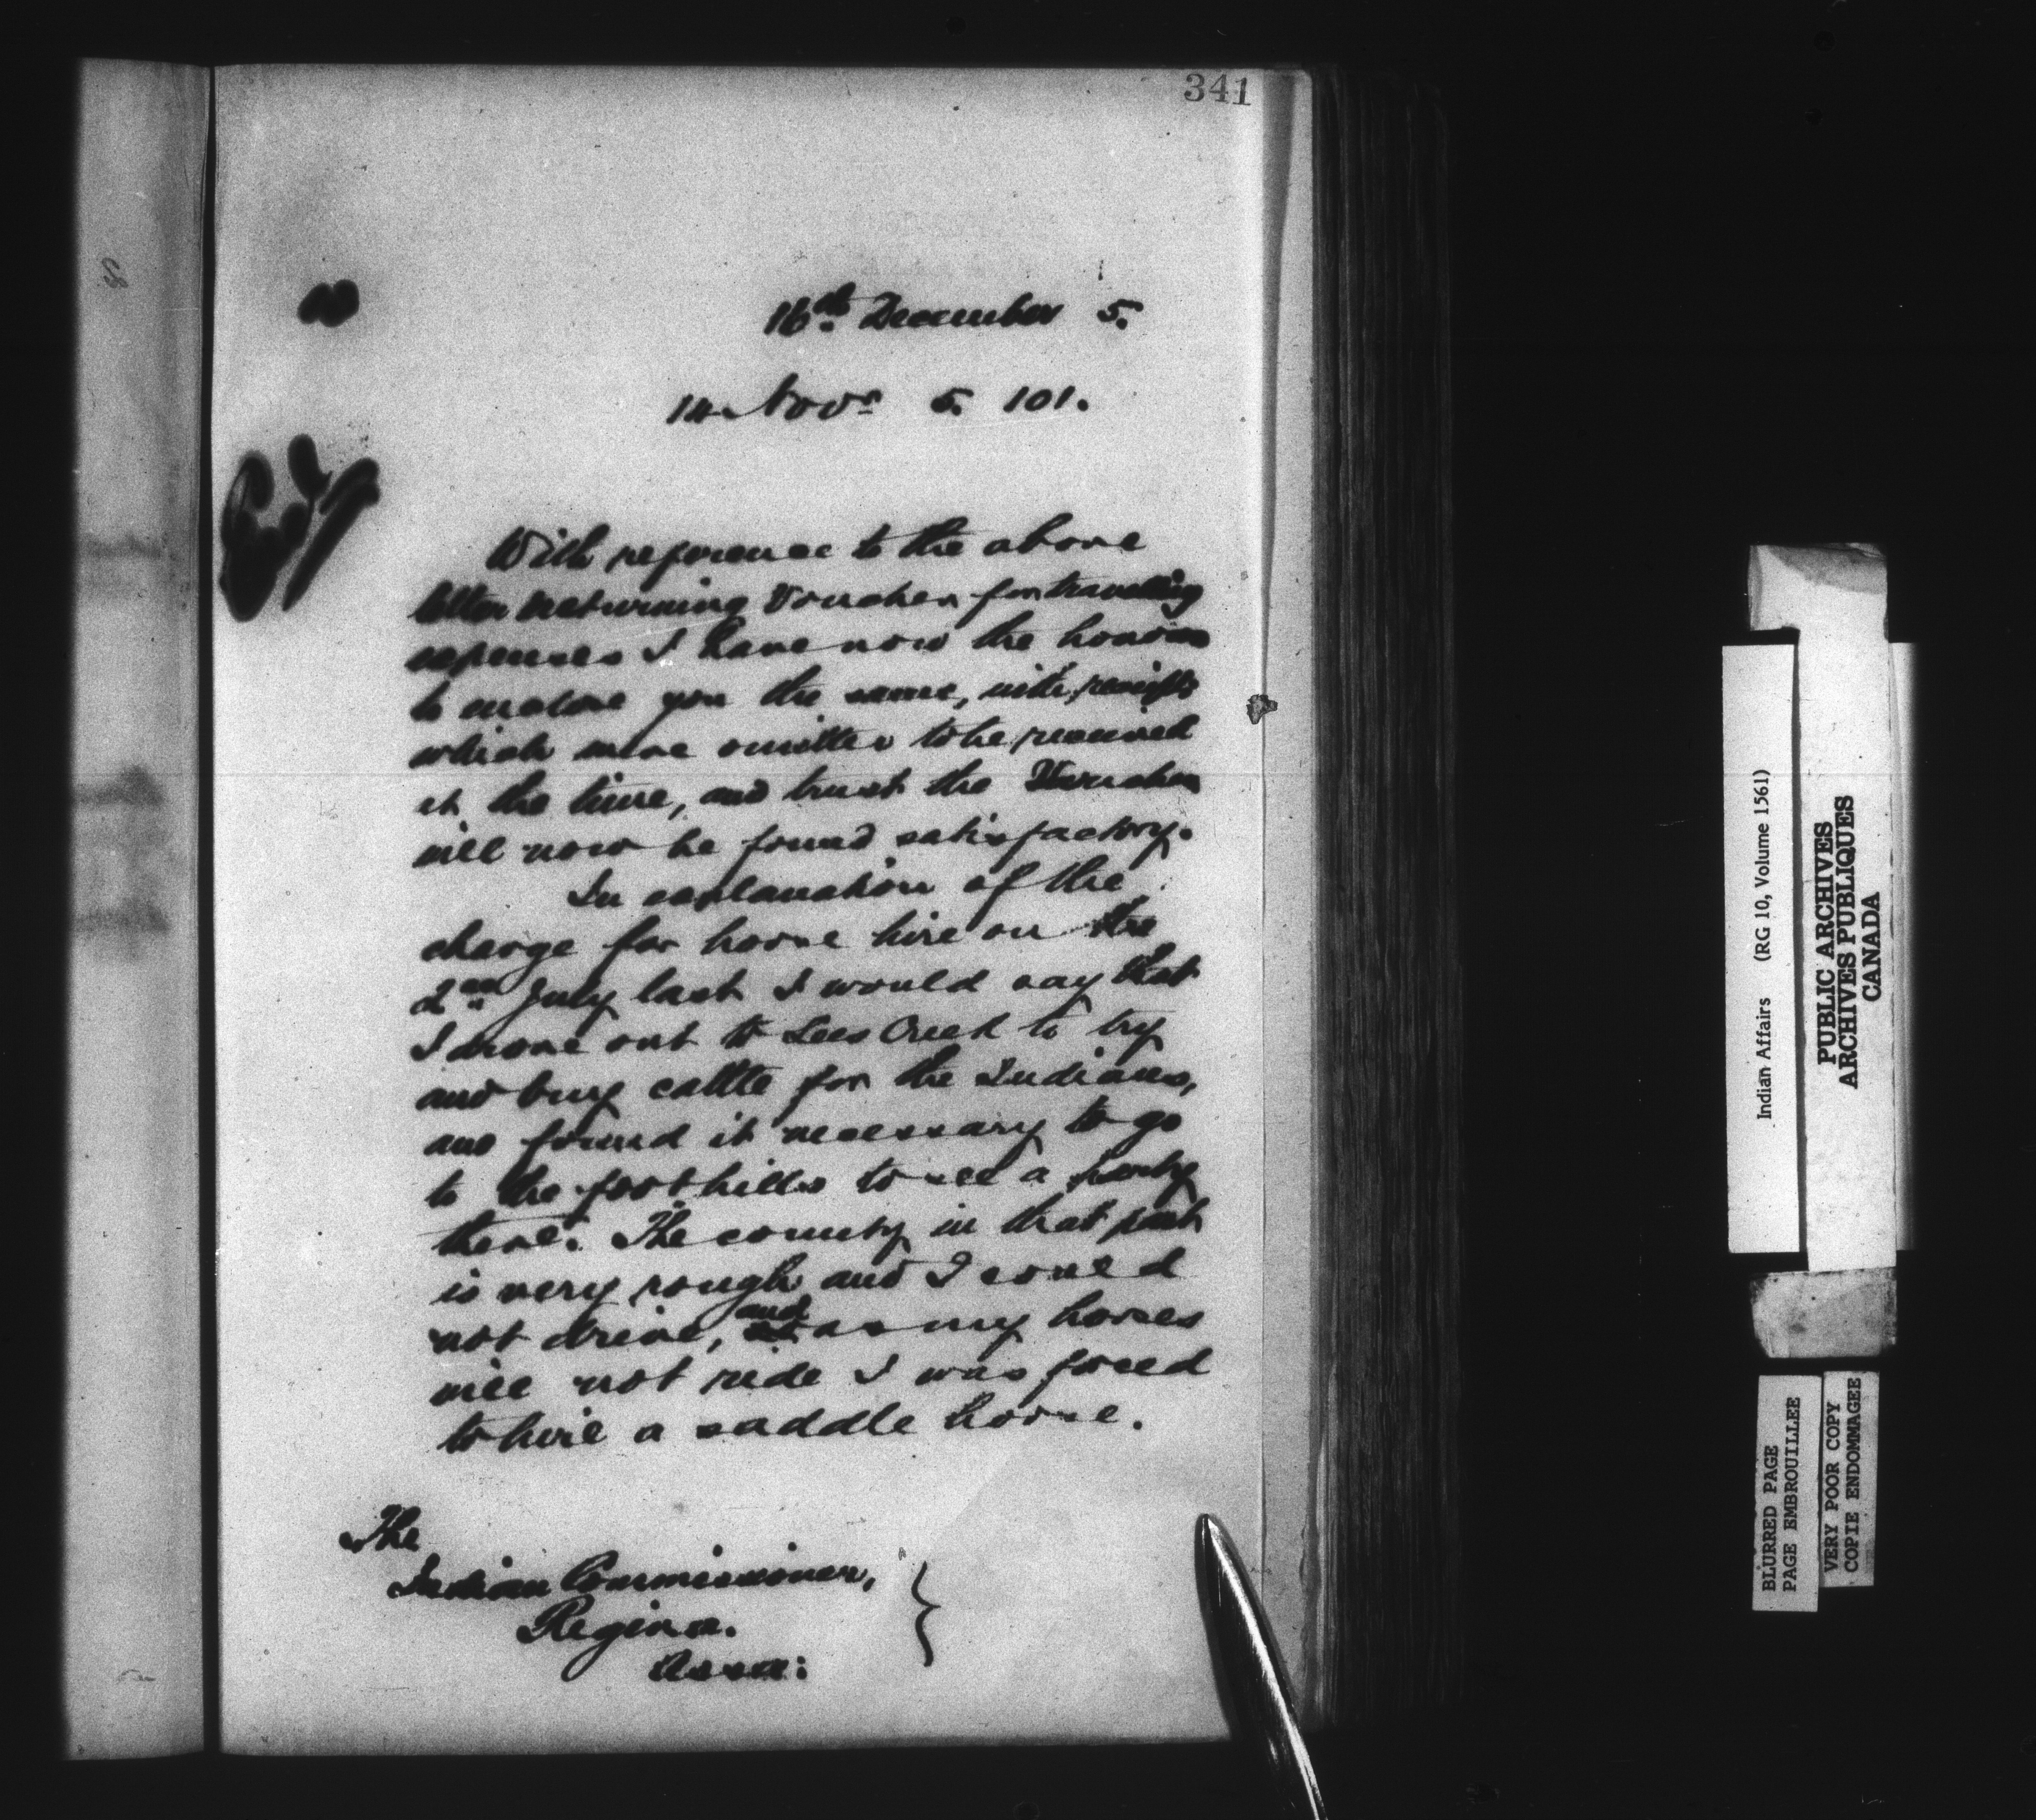 341
16th December 5.
14 Novr 5. 101.
With reference to the above
letter returning Voucher for travelling
expenses I have now the honour
to enclose you the same, with receipts
which were omitted to be received
at the time, and trust the Voucher
will now be found satisfactory.
In explanation of the
charge for horse hire on the
2nd July last I would say that
I drove out to Lees Creek to try
and buy cattle for the Indians,
and found it necessary to go
to the foothills to see a party
there. The country in that part
is very rough and I could
not drive, and as my horses
will not ride I was forced
to hire a saddle horse.
The
Indian Commissioner,
Regina.
Assa:
Indian Affairs (RG 10, Volume 1561)
PUBLIC ARCHIVES
ARCHIVES PUBLIQUES
CANADA
BLURED PAGE
PAGE EMBROUILLEE
VERY POOR COPY
COPIE ENDOMMAGEE